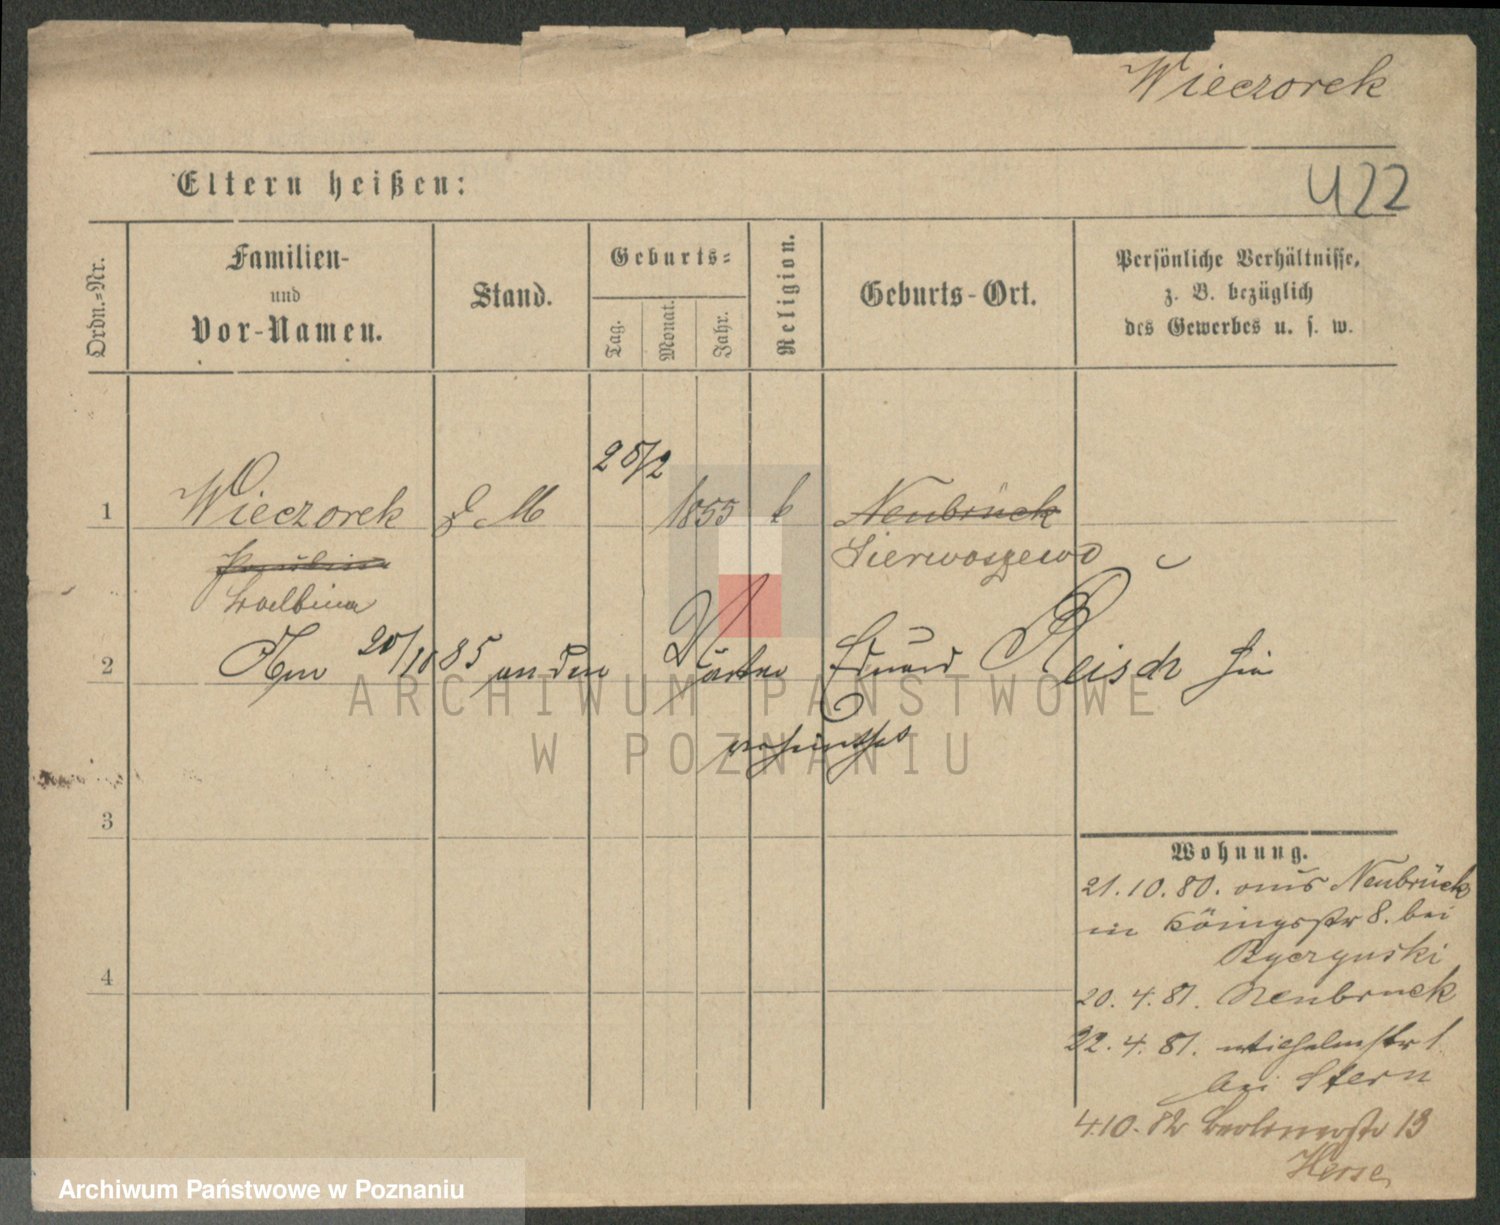 Wieczorek
Eltern heißen:
422
Ordn.=Nr.
Familien-
und
Vor-Namen.
Stand.
Geburts=
Tag.
Monat.
Jahr.
Religion.
Geburts-Ort.
Persönliche Verhältnisse,
z. B. bezüglich
des Gewerbes u. s. w.
25/2
1 Wieczorek d M 1855 k Neubrück
Sierwoszewo
Balbina
2 Am 20/10 85 an den Eduard Reisch hier
verheirathet
ARCHIWUM PAŃSTWOWE
W POZNANIU
3
4
Wohnung.
21.10.80. aus Neubrück
in Königsstr 8. bei
Ryczynski
20. 4. 81. Neubruck
22. 4. 81. Wilhelmstr 1
bei Stern
4.10. 82 Berlinerstr 13
Herse
Archiwum Państwowe w Poznaniu